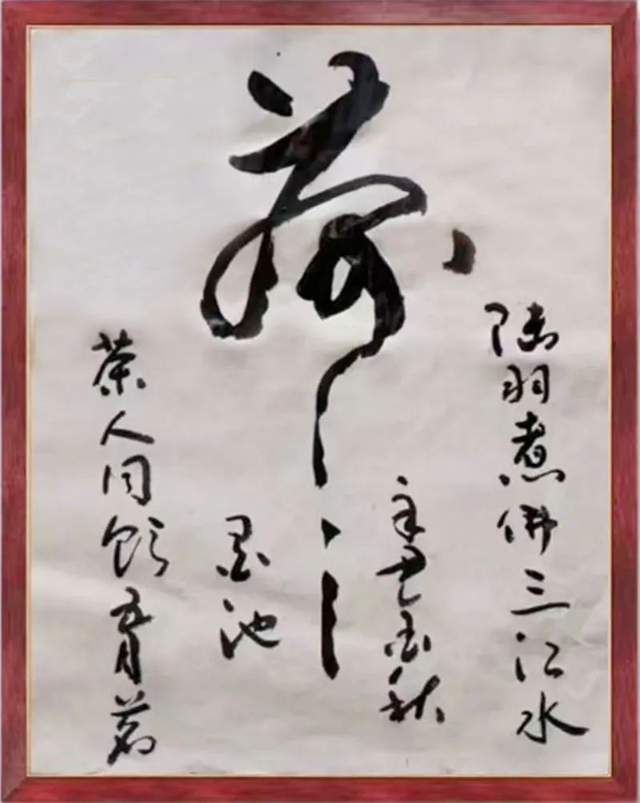 陆羽煮佛三江水
辛丑秋
墨池
茶人同饮五月茗